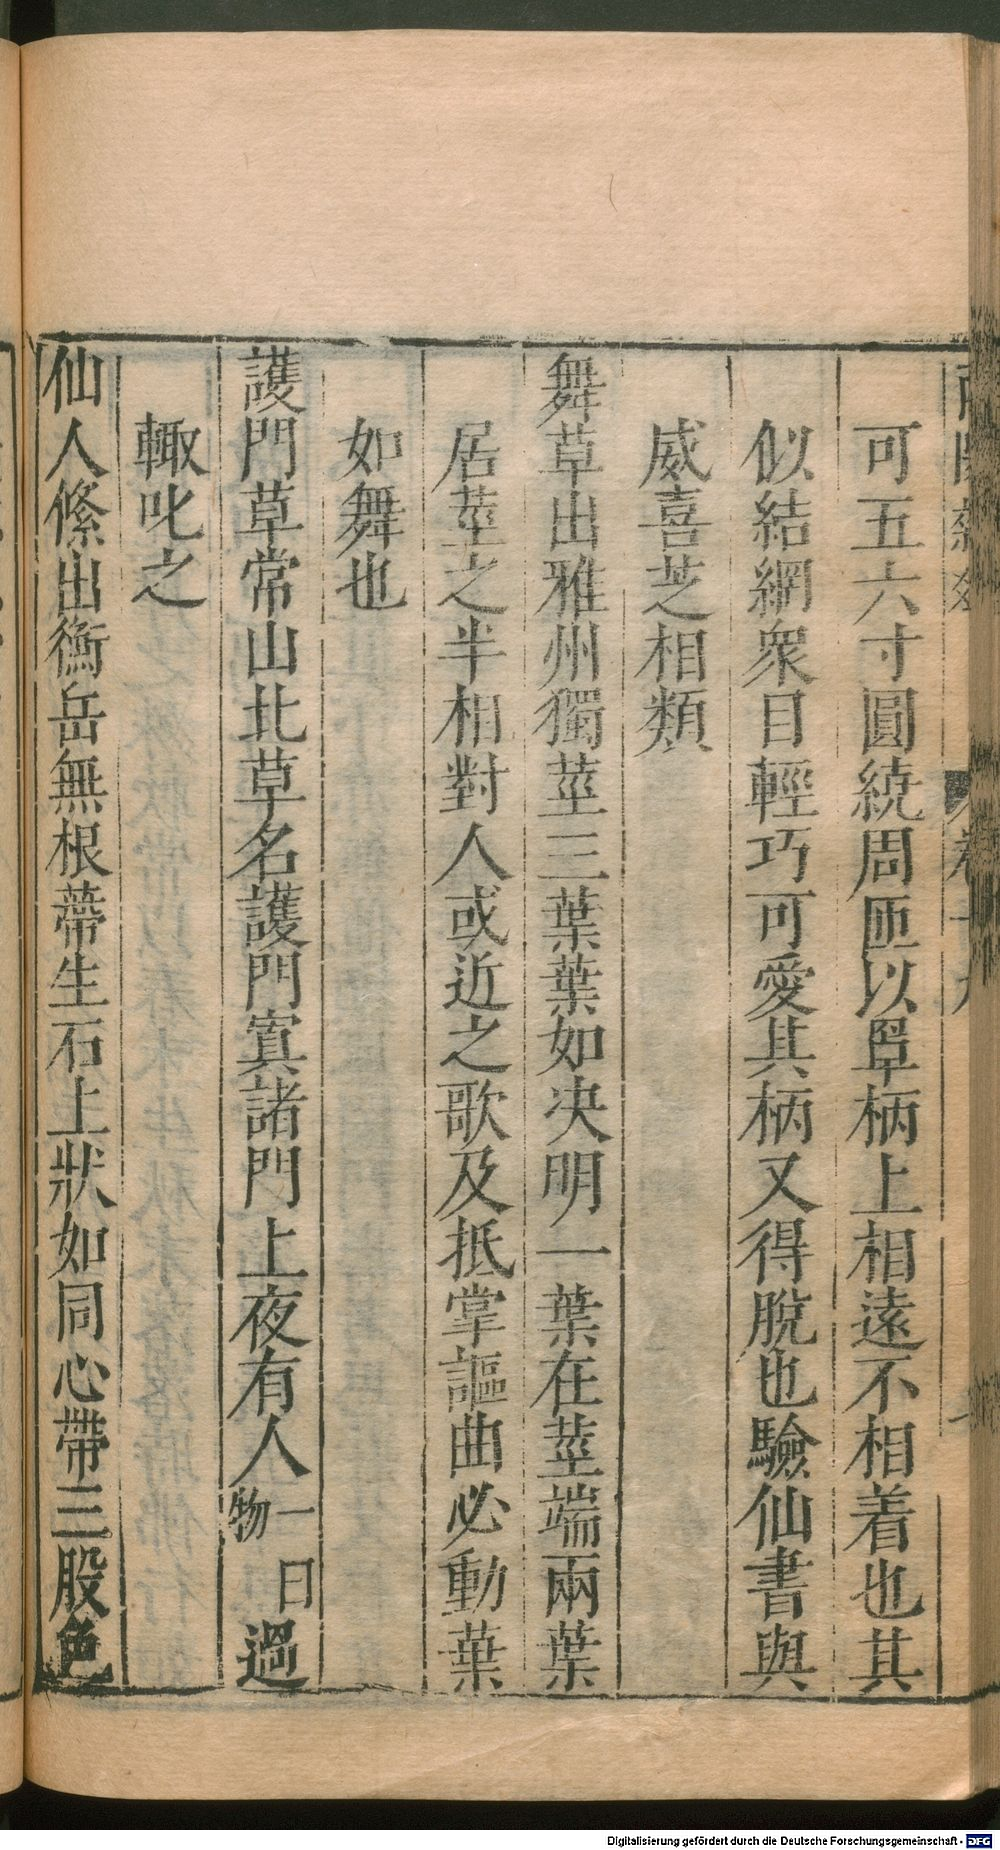 可五六寸圓繞周匝以罩柄上相遠不相着也其
似結網衆目輕巧可愛其柄又得脫也驗仙書與
威喜芝相類
舞草出雅州獨莖三葉葉如决明一葉在莖端兩葉
居莖之半相對人或近之歌及抵掌謳曲必動葉
如舞也
護門草常山北草名護門寘諸門上夜有人一曰物過
輙叱之
仙人絛出衡岳無根蔕生石上狀如同心帶三股色
Digitalisierung gefördert durch die Deutsche Forschungsgemeinschaft - DFG